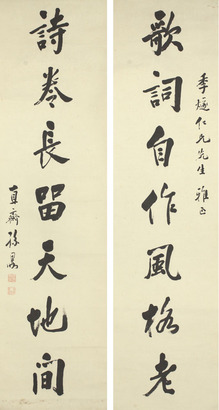 季遜仁兄先生 雅正
歌詞自作風格老
詩卷長留天地間
直齋孫